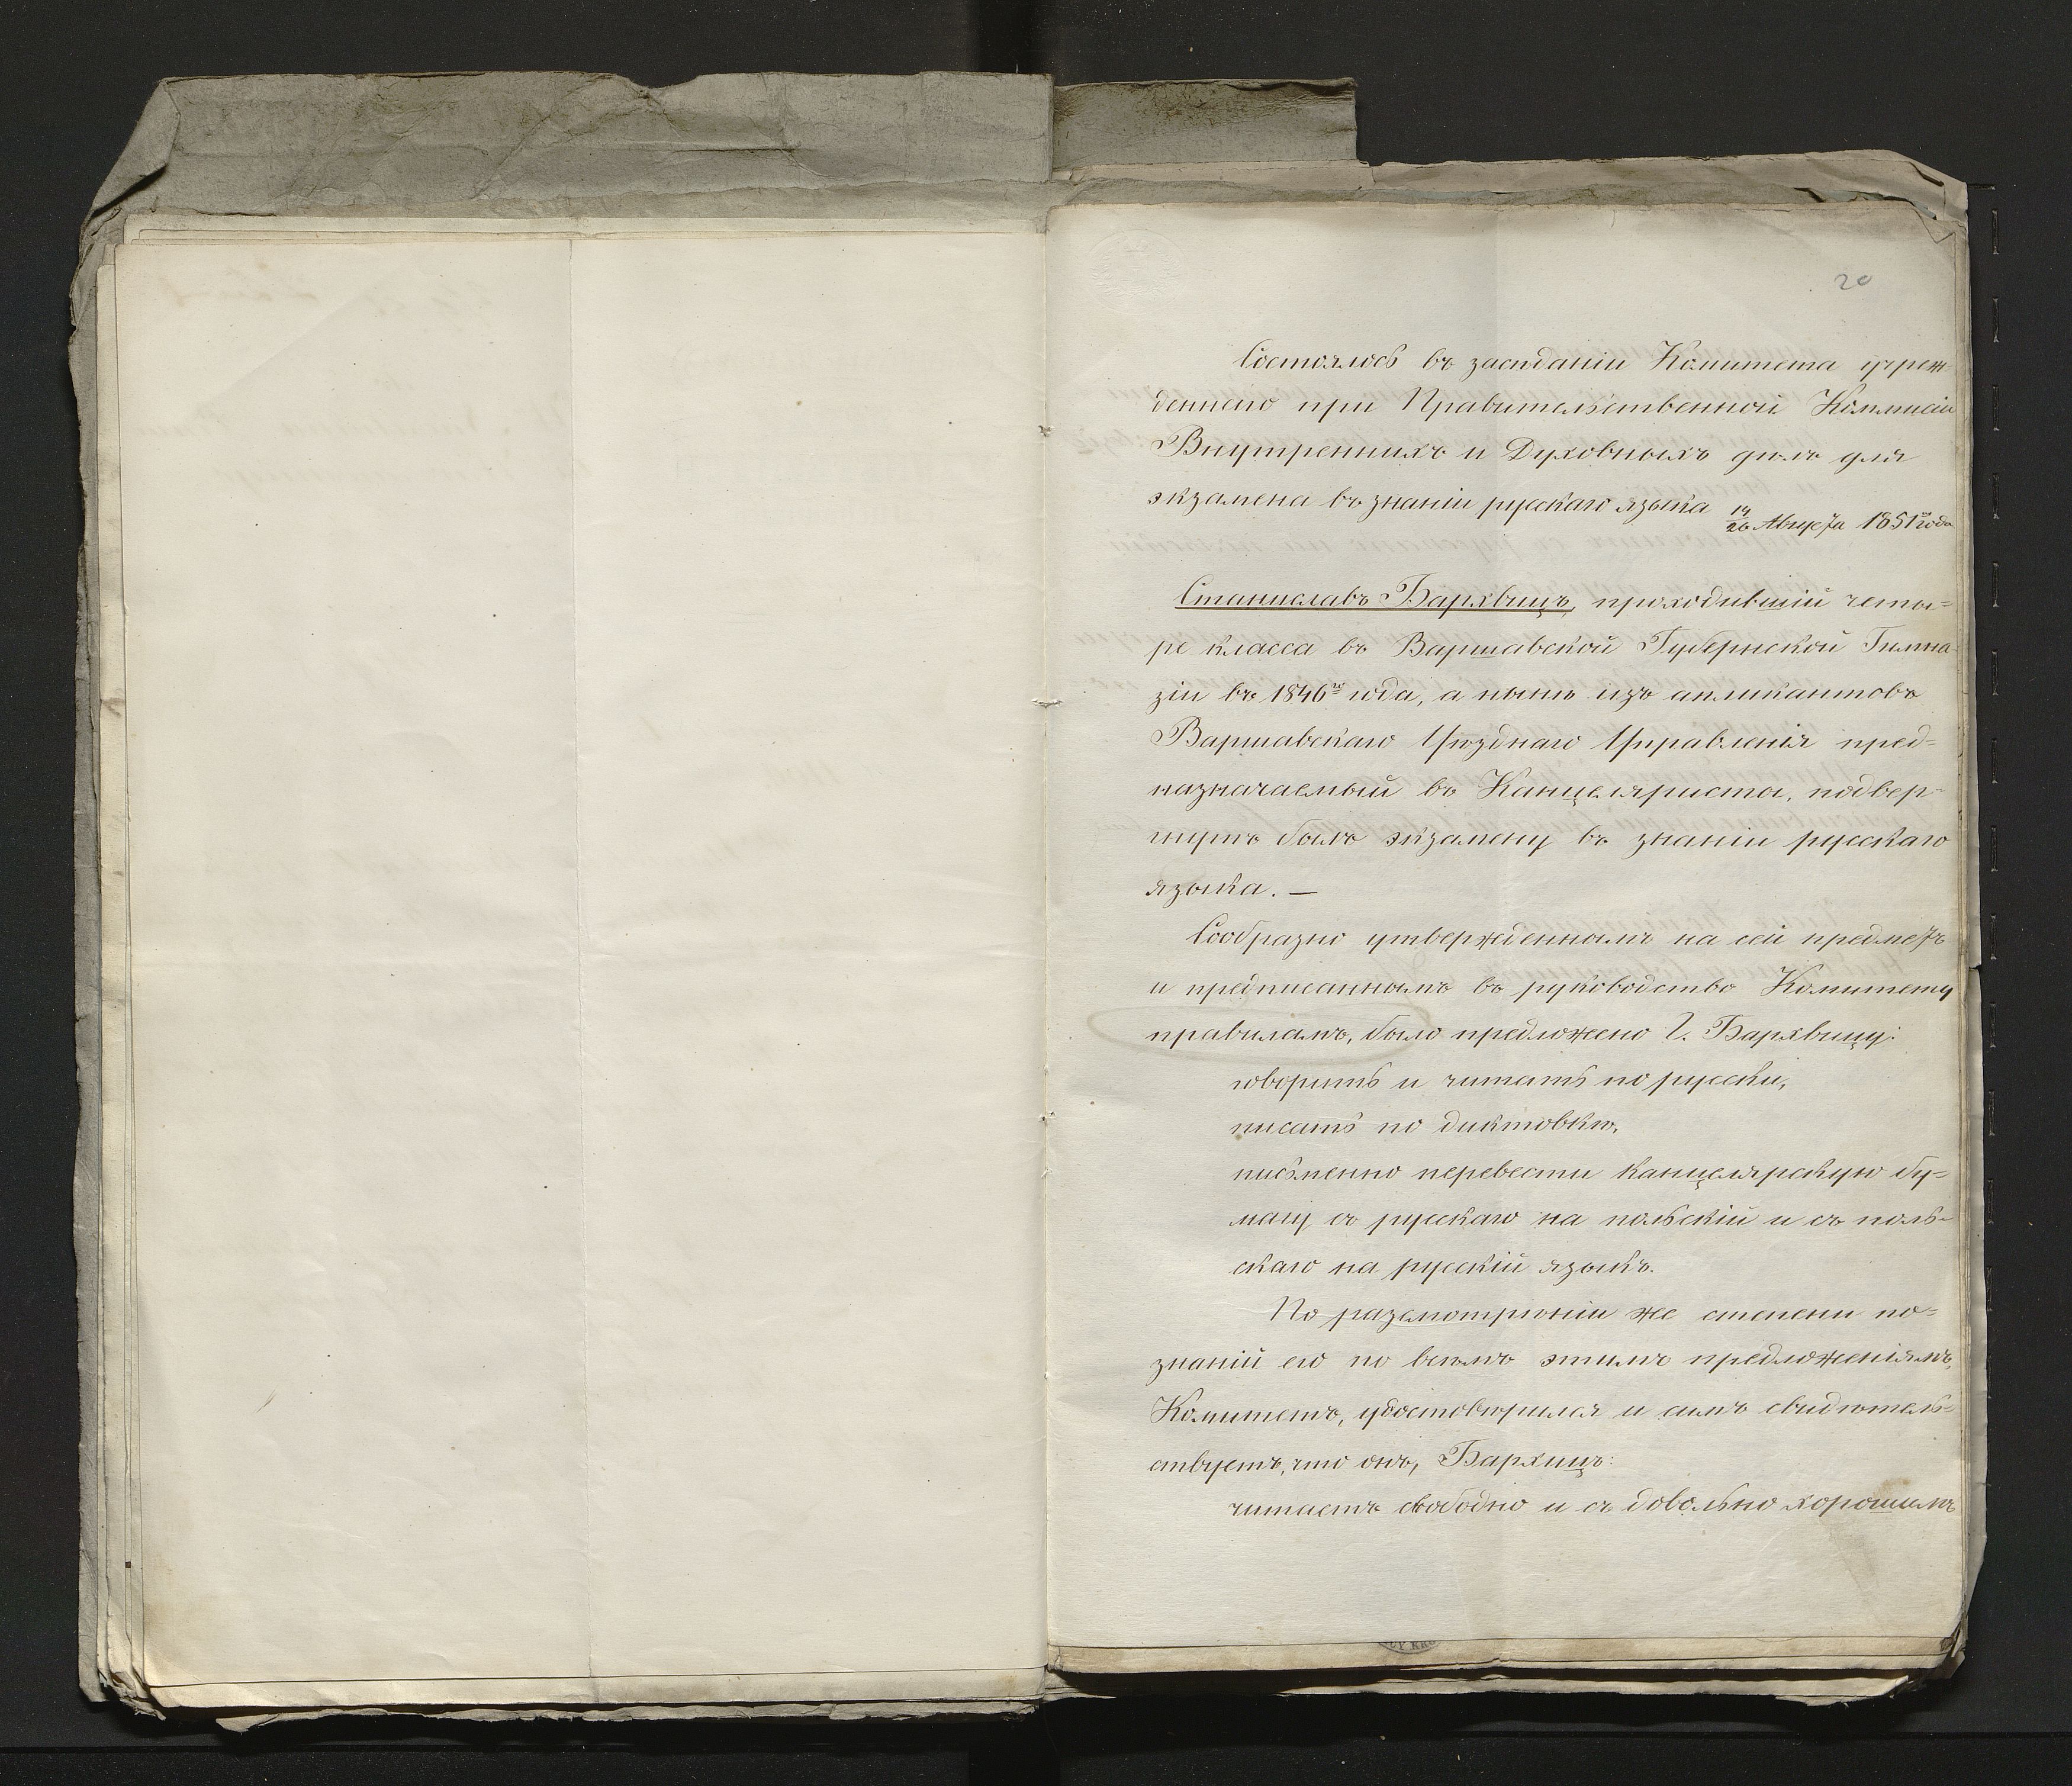 20
Состоялось въ засѣданіи Комитета учреж-
деннаго при Правительственной Коммисіи
Внутреннихъ и Духовныхъ дѣлъ для
экзамена въ знаніи русскаго языка 14/26 Августа 1851го года
Станиславъ Бархвицъ, проходившій четы=
ре класса въ Варшавской Губернской Гимна
зіи въ 1846го года, а нынѣ изъ апликантовъ
Варшавскаго Уѣзднаго Управленія пред=
назначаемый въ Канцеляриста, подвер-
гнутъ былъ экзамену въ знаніи русскаго
языка. —
Сообразно утвержденнымъ на сей предметъ
и предписаннымъ въ руководство Комитету
правиламъ, было предложено Г. Бархвицу:
говорить и читать по русски,
писать по диктовкѣ,
письменно перевести канцелярскую бу=
магу съ русскаго на польскій и съ поль=
скаго на русскій языкъ.
По разсмотрѣніи же степени по=
знаній его по всѣмъ этимъ предложеніямъ,
Комитетъ, удостовѣрился и симъ свидѣтель=
ствуетъ, что онъ, Бархицъ:
читаетъ свободно и съ довольно хорошимъ